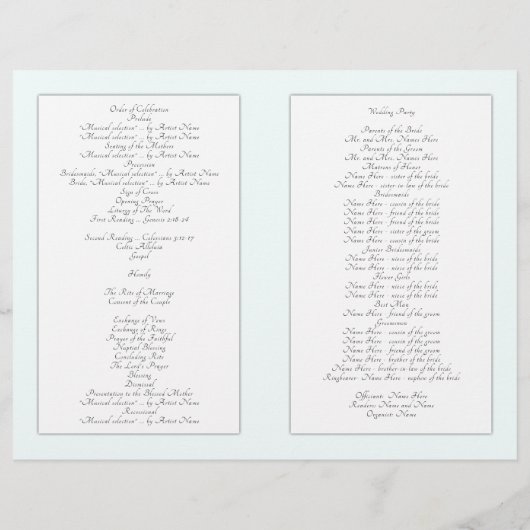 Order of Celebration
Prelude
"Musical selection" ... by Artist Name
Seating of the Mothers
"Musical selection" ... by Artist Name
Procession
Bridesmaids, "Musical selection" ... by Artist Name
Bride, "Musical selection" ... by Artist Name
Sign of Cross
Opening Prayer
Liturgy of The Word
First Reading ... Genesis 2:18-24
Second Reading ... Colossians 3:12-17
Celtic Alleluia
Gospel
Homily
The Rite of Marriage
Consent of the Couple
Exchange of Vows
Exchange of Rings
Prayer of the Faithful
Nuptial Blessing
Concluding Rite
The Lord's Prayer
Blessing
Dismissal
Presentation to the Blessed Mother
"Musical selection" ... by Artist Name
Recessional
"Musical selection" ... by Artist Name
Wedding Party
Parents of the Bride
Mr. and Mrs. Names Here
Parents of the Groom
Mr. and Mrs. Names Here
Matrons of Honor
Name Here - sister of the bride
Name Here - sister-in-law of the bride
Bridesmaids
Name Here - cousin of the bride
Name Here - friend of the bride
Name Here - friend of the bride
Name Here - sister of the groom
Name Here - cousin of the bride
Junior Bridesmaids
Name Here - niece of the bride
Name Here - niece of the bride
Flower Girls
Name Here - niece of the bride
Name Here - niece of the bride
Best Man
Name Here - friend of the groom
Groomsmen
Name Here - cousin of the groom
Name Here - cousin of the groom
Name Here - friend of the groom
Name Here - brother of the bride
Name Here - brother-in-law of the bride
Ringbearer: Name Here - nephew of the bride
Officiant: Name Here
Readers: Name and Name
Organist: Name